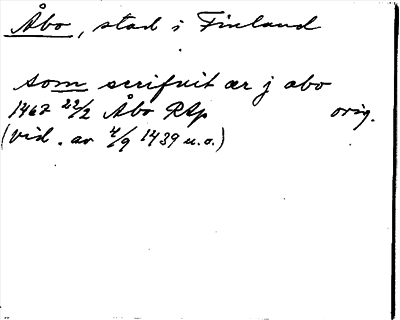 Åbo, stad i Finland
som scrifuit ær j abo
1467 22/2 Åbo RAp orig.
(vid. av 4/9 1439 u.o.)